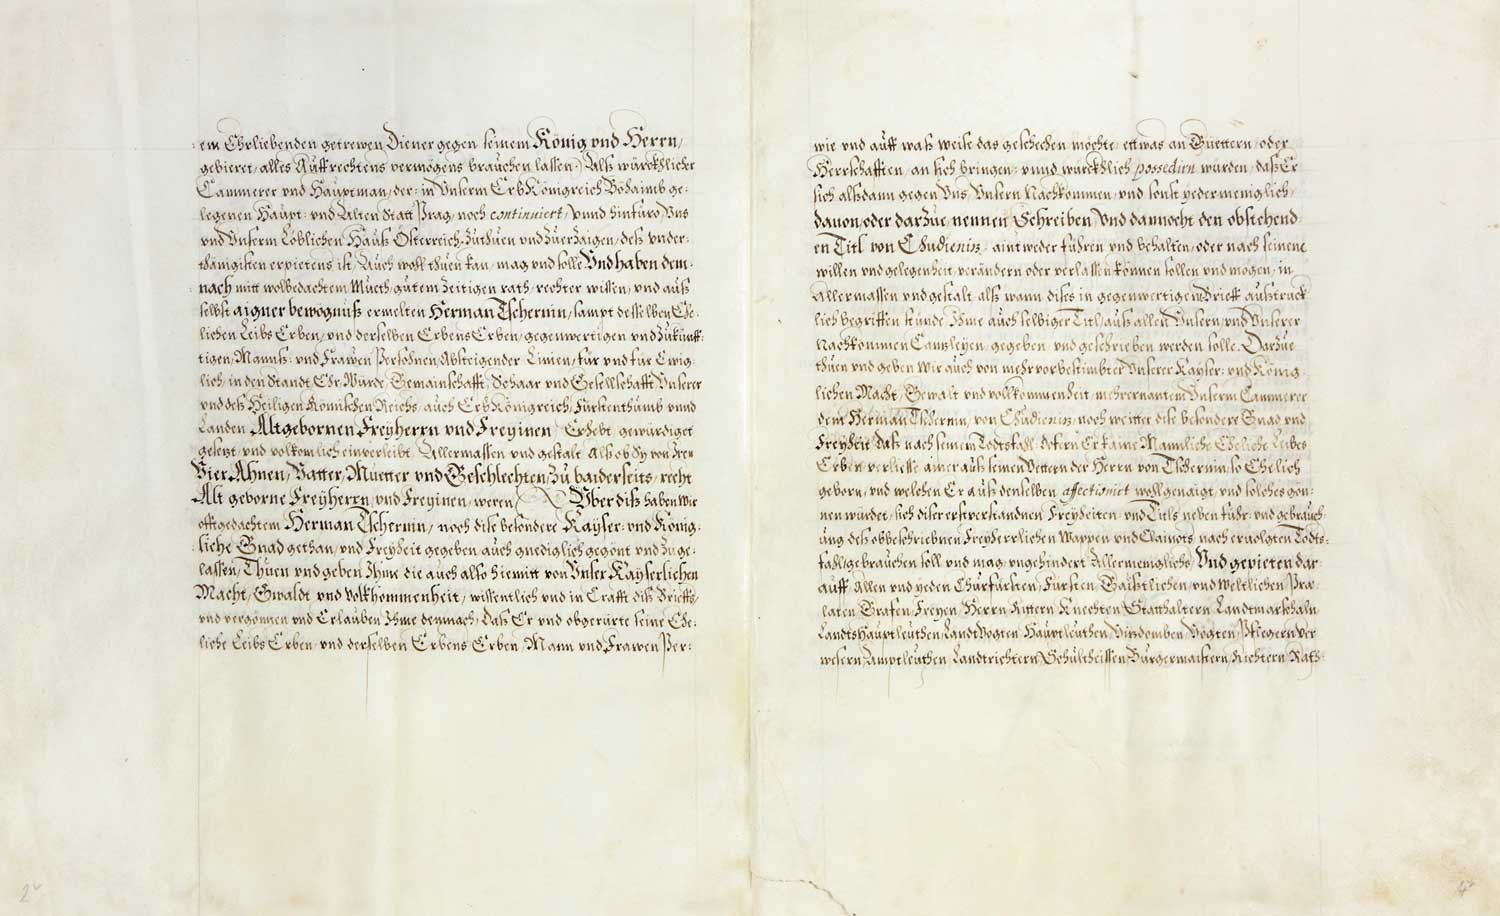 em Ehrliebenden getrewen Diener gegen seinem König vnd Herrn/
gebieret, alles Auffrechtens vermögens brauchen lassen. Alß würckhlicher
Cammerer vnd Hauptman, der in Vnserm ErbKönigreich Böhaimb ge-
legenen Haupt- vnd Alten Statt Prag, noch continuiert, vnnd hinfüro Vns
vnd Vnserm Löblichen Hauß Österreich, zuthuen vnd zuerzaigen, deß vnder-
thänigisten erpietens ist, Auch woll thuen kan, mag vnd solle, Vnd haben dem-
nach mitt wolbedachtem Mueth, gutem zeitigen rath, rechter wissen, vnd auß
selbst aigner bewögnuß ermelten Herman Tschernin, sampt desselben Ehe-
lichen Leibs Erben, vnd derselben Erbens Erben, gegenwertigen vnd Zukünff-
tigen, Manns- vnd Frawen Persohnen, Absteigender Linien, für vnd für Ewig-
lich, in den Standt, Ehr, Würde, Gemainschafft, Schaar vnd Gesellschafft Vnserer
vnd deß Heiligen Römischen Reichs, auch ErbKönigreich, Fürstenthumb vnnd
Landen Altgebornen Freyherrn vnd Freyinen, Erhebt, gewürdiget
gesezt, vnd volkomlich einverleibt, Allermassen vnd gestalt, Als ob Sy von Iren
Vier Ahnen, Vatter, Muetter vnd Geschlechten, Zu baiderseits, recht
Alt geborne Freyherrn, vnd Freyinen, weren, Vber diß haben Wir
offtgedachtem Herman Tschernin, noch dise besondere Kayser- vnd König-
liche Gnad gethan, vnd Freyheit gegeben, auch gnediglich gegönt vnd zuge-
lassen, Thuen vnd geben Ihme die auch also hiemitt von Vnser Kayserlichen
Macht, Gwaldt vnd Volkhommenheit, wissentlich vnd in Crafft diß Brieffs,
vnd vergönnen vnd Erlauben Ihme demnach, Daß Er vnd obgerürte seine Ehe-
liche Leibs Erben, vnd derselben Erbens Erben, Mann vnd Frawen Per-
2v
wie vnd auff waß weise das geschechen möchte, ettwas an Güettern, oder
Herrschafften, an sich bringen, vnnd würckhlich possediren würden, daß Er
sich alßdann gegen Vns, Vnsern Nachkommen, vnd sonst yedermeniglich,
dauon, oder darzue, nennen, Schreiben, Vnd dannocht den obstehend-
en Titl von Chudieniz, aintweder führen vnd behalten, oder nach seinem
willen vnd gelegenheit, verändern oder verlassen können sollen vnd mögen, in
Allermassen vnd gestalt, alß wann dises in gegenwertigem Brieff, außtruck-
lich begriffen stünde, Ihme auch selbiger Titl, auß allen Vnsern, vnd Vnserer
Nachkommen Canzleyen, gegeben, vnd geschrieben werden solle. Darzue
thuen vnd geben Wir auch von mehr vorbestimbter Vnserer Kayser- vnd König-
lichen Macht, Gewalt vnd vollkommenheit, mehrernantem Vnserm Cammerer
dem Herman Tschernin, von Chudieniz, noch weitter dise besondere Gnad vnd
Freyheit, daß nach seinem Todtsfall, dafern Er kaine Mannliche Eheliche Leibes
Erben verliesse, ainer auß seinen Vettern, der Herrn von Tschernin, so Ehelich
geborn, vnd welchen Er auß denselben affectioniet, woll genaigt, vnd solches gön-
nen würdet, sich diser erstverstandnen Freyheiten, vnd Titls, neben führ- vnd gebrauch-
ung des obbeschriebnen Freyherrlichen Wappen vnd Clainots, nach ervolgten Todts-
fahl, gebrauchen soll vnd mag, vngehindert Allermenigliches, Vnd gepieten dar-
auff, Allen vnd yeden Churfürsten, Fürsten, Gaistlichen, vnd Weltlichen, Præ-
laten, Grafen, Freyen, Herrn, Rittern, Knechten, Statthaltern, Landtmarschaln
LandtsHauptleuthen, LandtVögten, Hauptleuthen, Vizdomben, Vögten, Pflegern, Ver-
wesern, Amptleuthen, Landtrichtern, Schultheissen, Bürgermaistern, Richtern, Räth-
4r